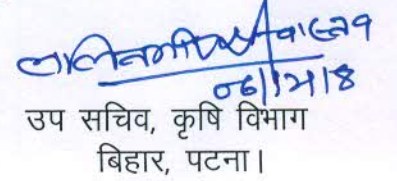 06/12/18
उप सचिव, कृषि विभाग
बिहार, पटना।